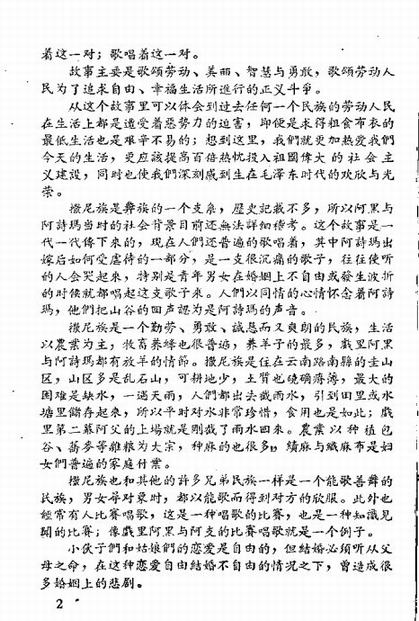 着这一对；歌唱着这一对。
故事主要是歌頌劳动、美丽、智慧与勇敢，歌頌劳动人
民为了追求自由、幸福生活所進行的正义斗爭。
从这个故事里可以体会到过去任何一个民族的劳动人民
在生活上都是遭受着惡势力的迫害，即便是求得粗食布衣的
最低生活也是艰辛不易的；想到这里，我們就更加热爱我們
今天的生活，更应該提高百倍热忱投入祖國偉大的社会主
义建設，同时也使我們深刻感到生在毛澤东时代的欢欣与光
荣。
撒尼族是彝族的一个支系，歷史記載不多，所以阿黑与
阿詩瑪当时的社会背景目前还無法詳細稽考。这个故事是一
代一代傳下來的，現在人們还普遍的歌唱着，其中阿詩瑪出
嫁后如何受虐待的一部分，是一支很沉痛的歌子，往往使听
的人会哭起來，特别是青年男女在婚姻上不自由或發生波折
的时候就都唱起这支歌子來。人們以同情的心情怀念着阿詩
瑪，他們把山谷的回声認为是阿詩瑪的声音。
撒尼族是一个勤劳、勇敢、誠恳而又爽朗的民族，生活
以農業为主，牧畜养蜂也很普遍，养羊子的最多，戲里阿黑
与阿詩瑪都有放羊的情節。撒尼族是住在云南路南縣的圭山
区，山区多是乱石山，可耕地少，土質也磽确瘠薄，最大的
困难是缺水，一遇天雨，人們都出去截雨水，引到田里或水
塘里儲存起來，所以平时对水非常珍惜，食用也是如此；戲
里第二幕阿父的上場就是剛截了雨水回來。農業以种植包
谷、蕎麥等雜粮为大宗，种麻的也很多，績麻与織麻布是妇
女們普遍的家庭付業。
撒尼族也和其他的許多兄弟民族一样是一个能歌善舞的
民族，男女尋对象时，都以能歌而得到对方的欣服。此外也
經常有人比赛唱歌，这是一种唱歌的比赛，也是一种知識見
聞的比赛；像戲里阿黑与阿支的比赛唱歌就是一个例子。
小伙子們和姑娘們的恋爱是自由的，但結婚必須听从父
母之命，在这种恋爱自由結婚不自由的情况之下，曾造成很
多婚姻上的悲剧。
2